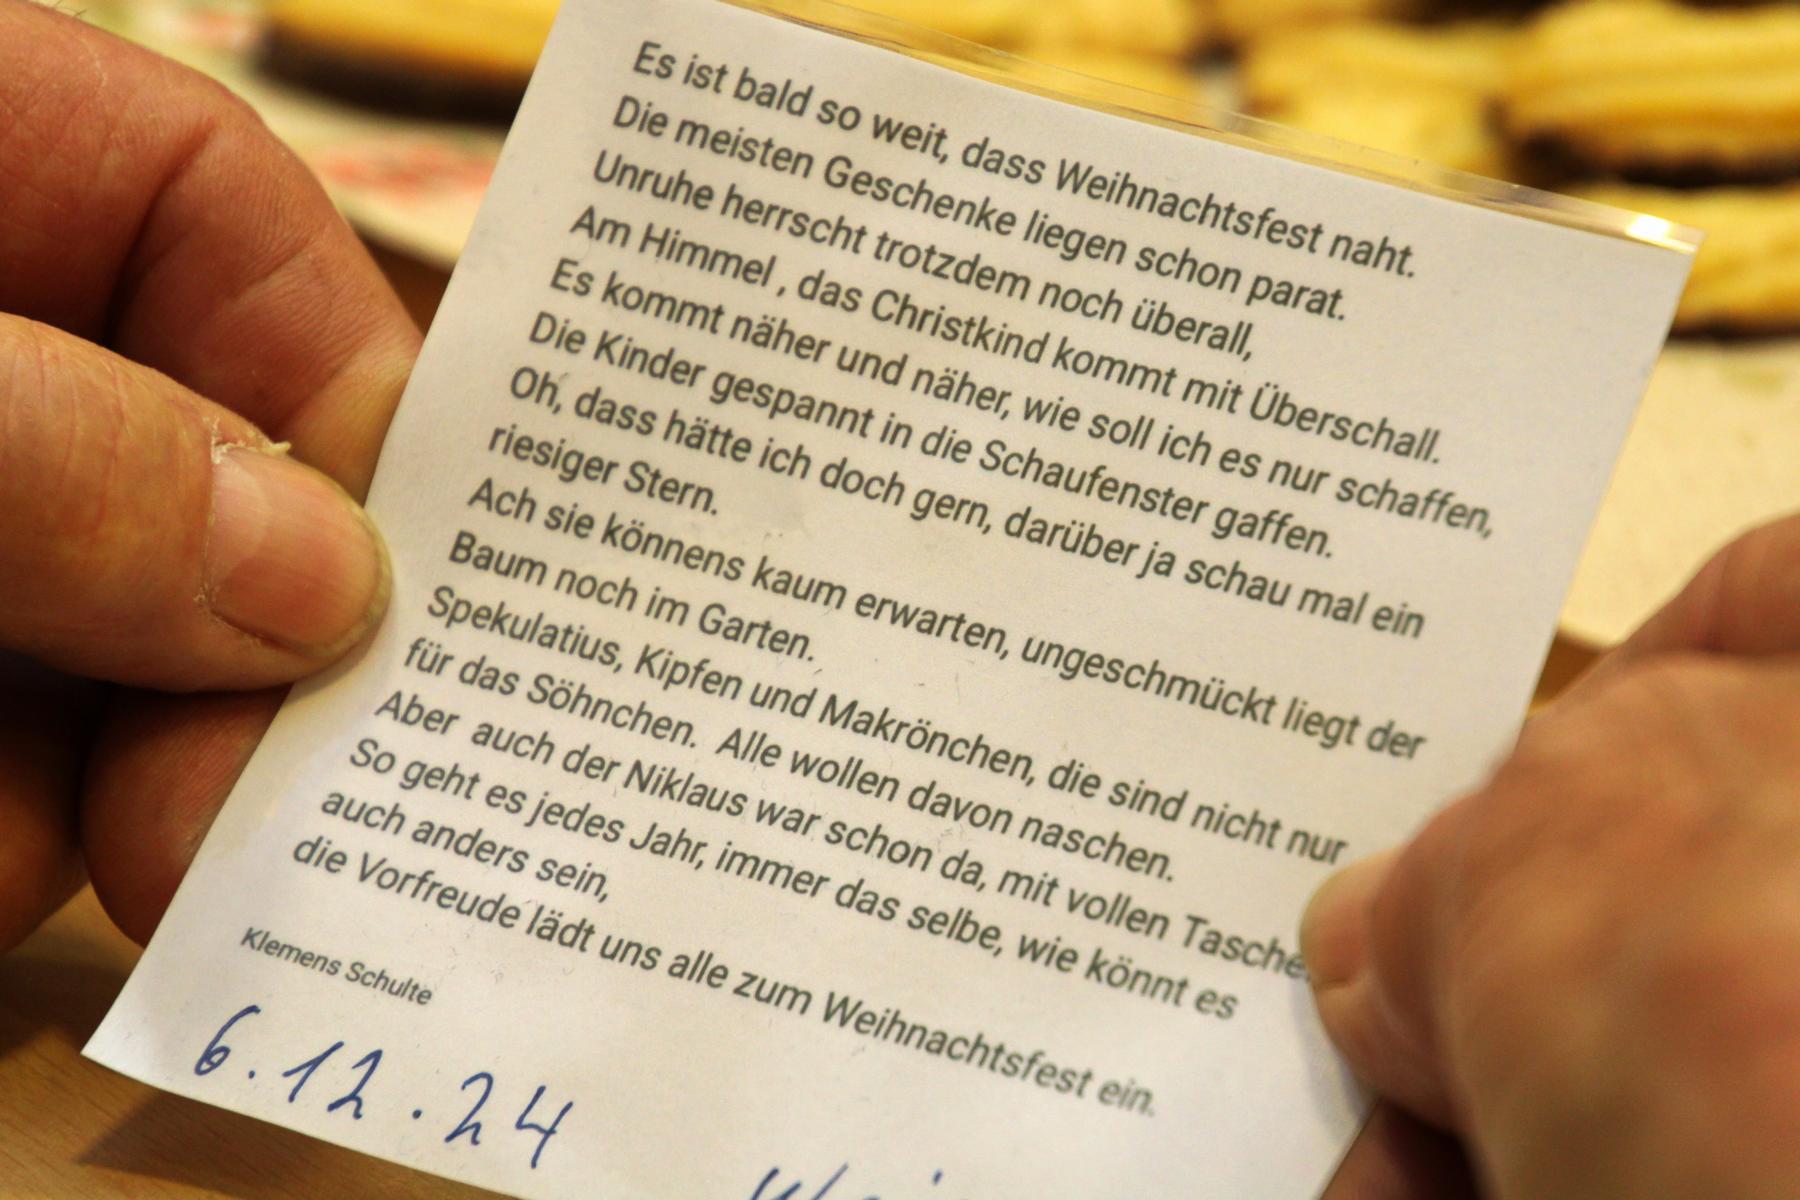 Es ist bald so weit, dass Weihnachtsfest naht.
Die meisten Geschenke liegen schon parat.
Unruhe herrscht trotzdem noch überall,
Am Himmel , das Christkind kommt mit Überschall.
Es kommt näher und näher, wie soll ich es nur schaffen,
Die Kinder gespannt in die Schaufenster gaffen.
Oh, dass hätte ich doch gern, darüber ja schau mal ein
riesiger Stern.
Ach sie könnens kaum erwarten, ungeschmückt liegt der
Baum noch im Garten.
Spekulatius, Kipfen und Makrönchen, die sind nicht nur
für das Söhnchen. Alle wollen davon naschen.
Aber auch der Niklaus war schon da, mit vollen
So geht es jedes Jahr, immer das selbe, wie könnt es
auch anders sein,
die Vorfreude lädt uns alle zum Weihnachtsfest ein.
Klemens Schulte
6.12.24